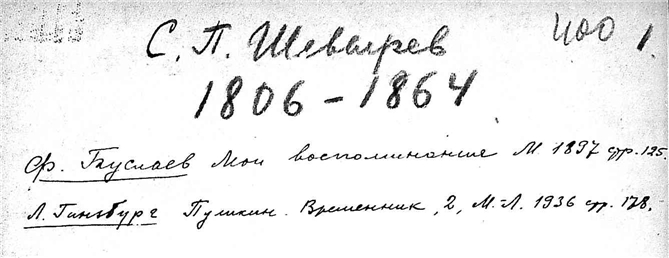 С. П. Шевырев 400 1.
1806 – 1864
Ф. Буслаев Мои воспоминание М. 1897 стр. 125.
Л. Гинзбург Пушкин. Временник, 2, М.-Л. 1936 стр. 178.